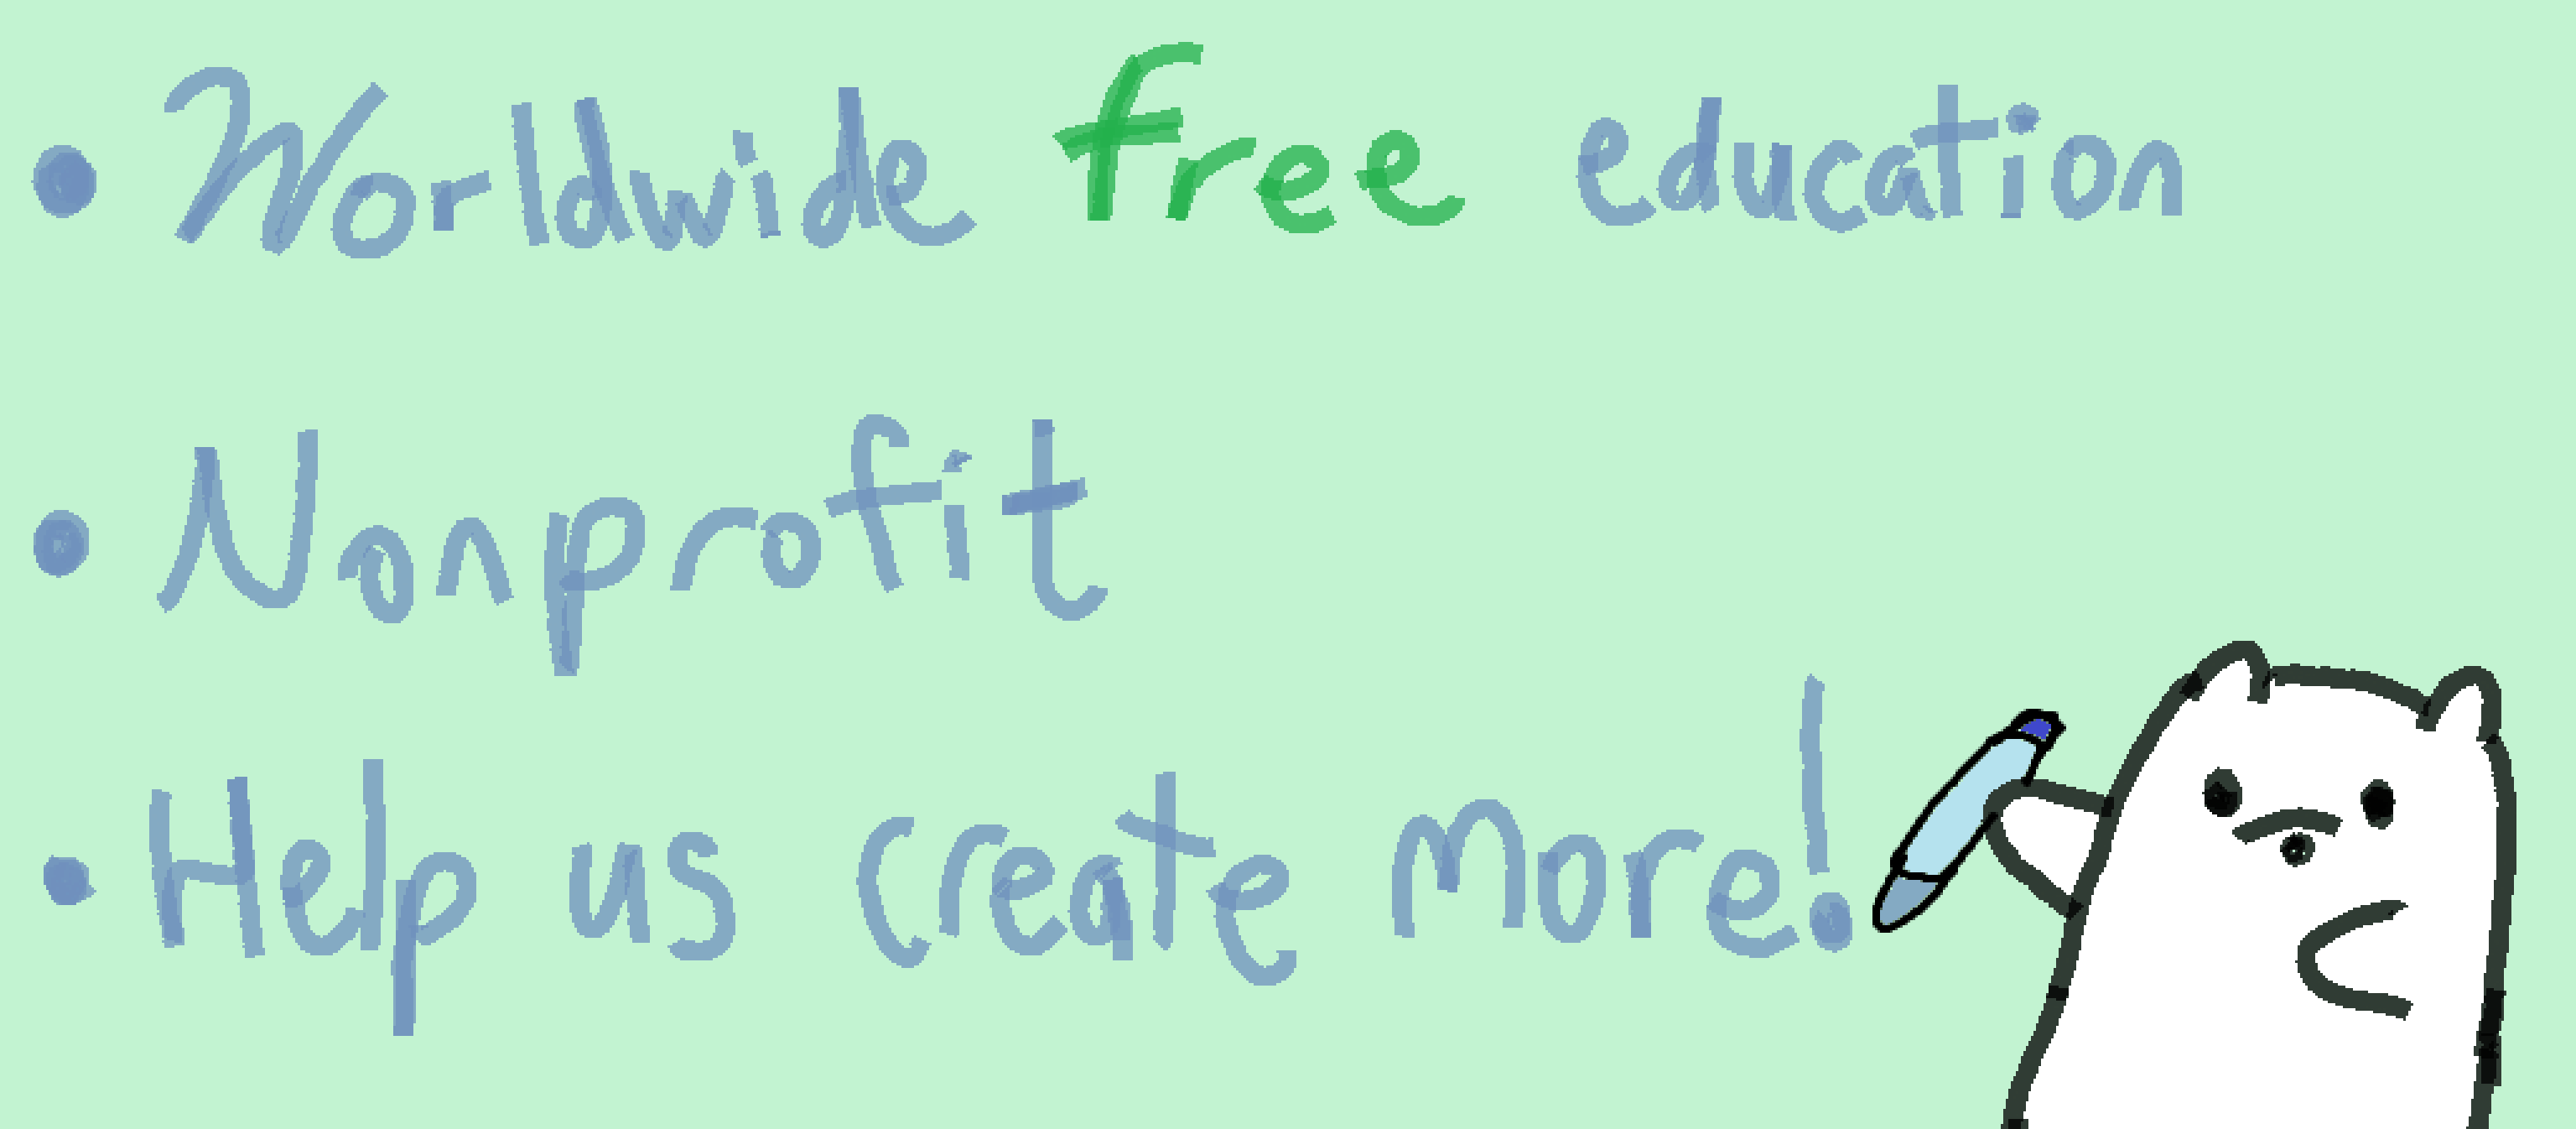 • Worldwide free education
• Nonprofit
• Help us create more!